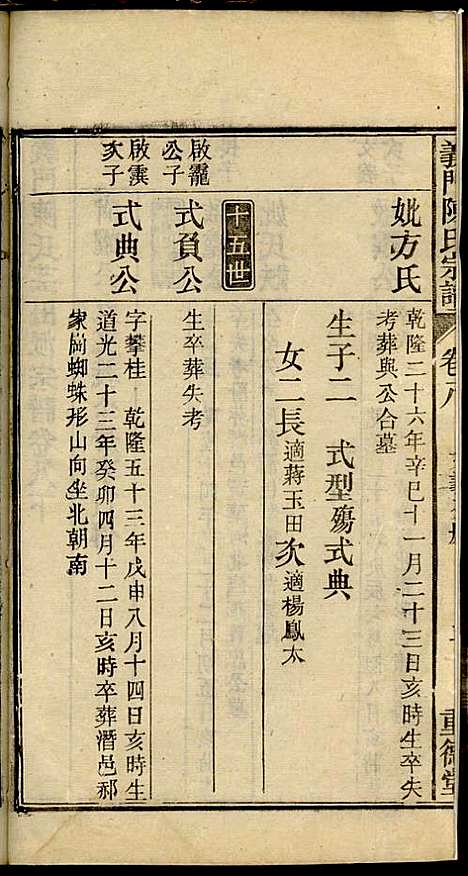 義門陳氏宗譜
卷八
重德堂
妣方氏
乾隆二十六年辛巳十一月二十三日亥時生卒失
考葬與公合墓
生子二 式型殤 式典
女二長適蔣玉田次適楊鳳太
十五世
啟龍
公子
式負公
生卒葬失考
啟雲
次子
式典公
字攀桂 乾隆五十三年戊申八月十四日亥時生
道光二十三年癸卯四月十二日亥時卒葬潛邑郝
家崗蜘蛛形山向坐北朝南